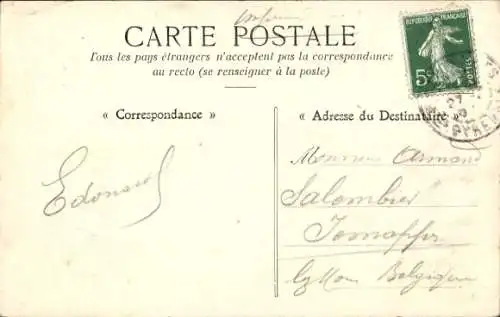 CARTE POSTALE
Tous les pays étrangers n'acceptent pas la correspondance
au recto (se renseigner à la poste)
RÉPUBLIQUE FRANÇAISE
5c
POSTES
27
« Correspondance »
« Adresse du Destinataire »
Edouard
Monsieur Armand
Salembier
Jemappes
Belgique